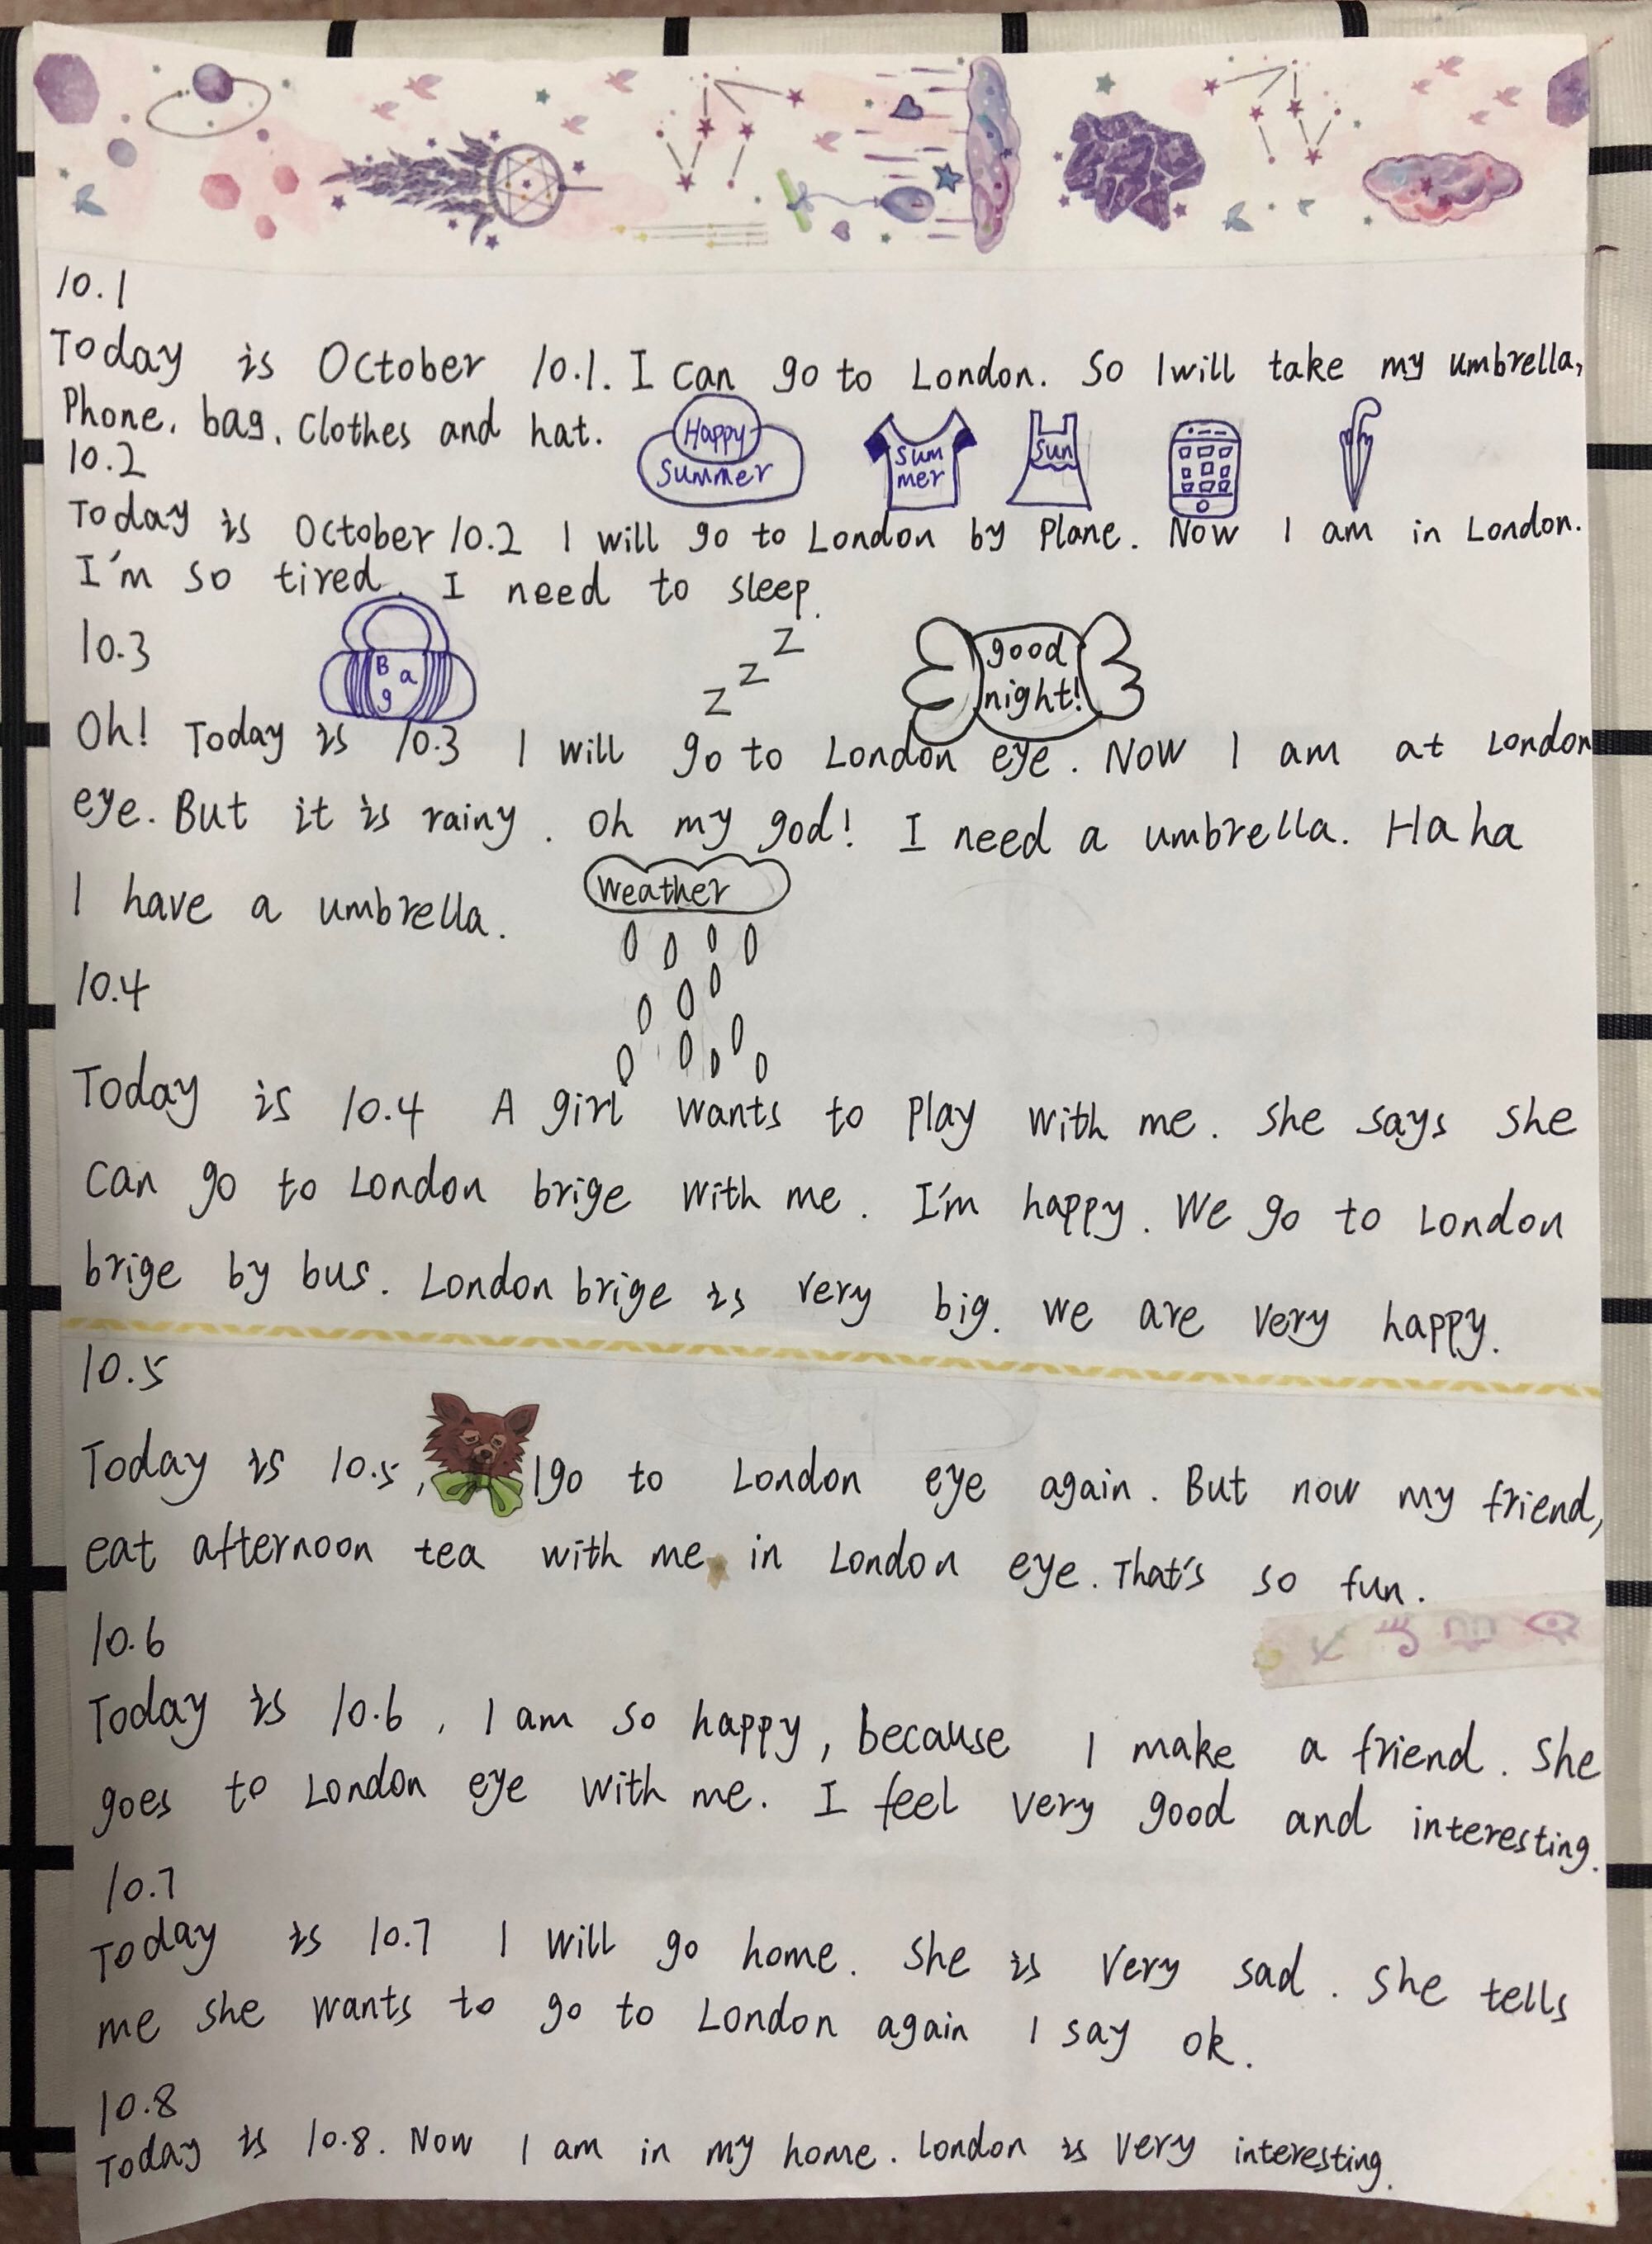 10.1
Today is October 10.1. I can go to London. So I will take my umbrella,
Phone, bag, Clothes and hat.
Happy
Summer
Sum
mer
Sun
10.2
Today is October 10.2 I will go to London by Plane. Now I am in London.
I'm so tired. I need to sleep.
Bag
z z z
good
night!
10.3
Oh! Today is 10.3 I will go to London eye. Now I am at London
eye. But it is rainy. Oh my god! I need a umbrella. Ha ha
I have a umbrella.
Weather
10.4
Today is 10.4 A girl wants to play with me. She says she
can go to London brige with me. I'm happy. We go to London
brige by bus. London brige is very big. we are very happy.
10.5
Today is 10.5, I go to London eye again. But now my friend,
eat afternoon tea with me in London eye. That's so fun.
10.6
Today is 10.6, I am so happy, because I make a friend. She
goes to London eye with me. I feel very good and interesting.
10.7
Today is 10.7 I will go home. She is very sad. She tells
me she wants to go to London again I say ok.
10.8
Today is 10.8. Now I am in my home. London is very interesting.